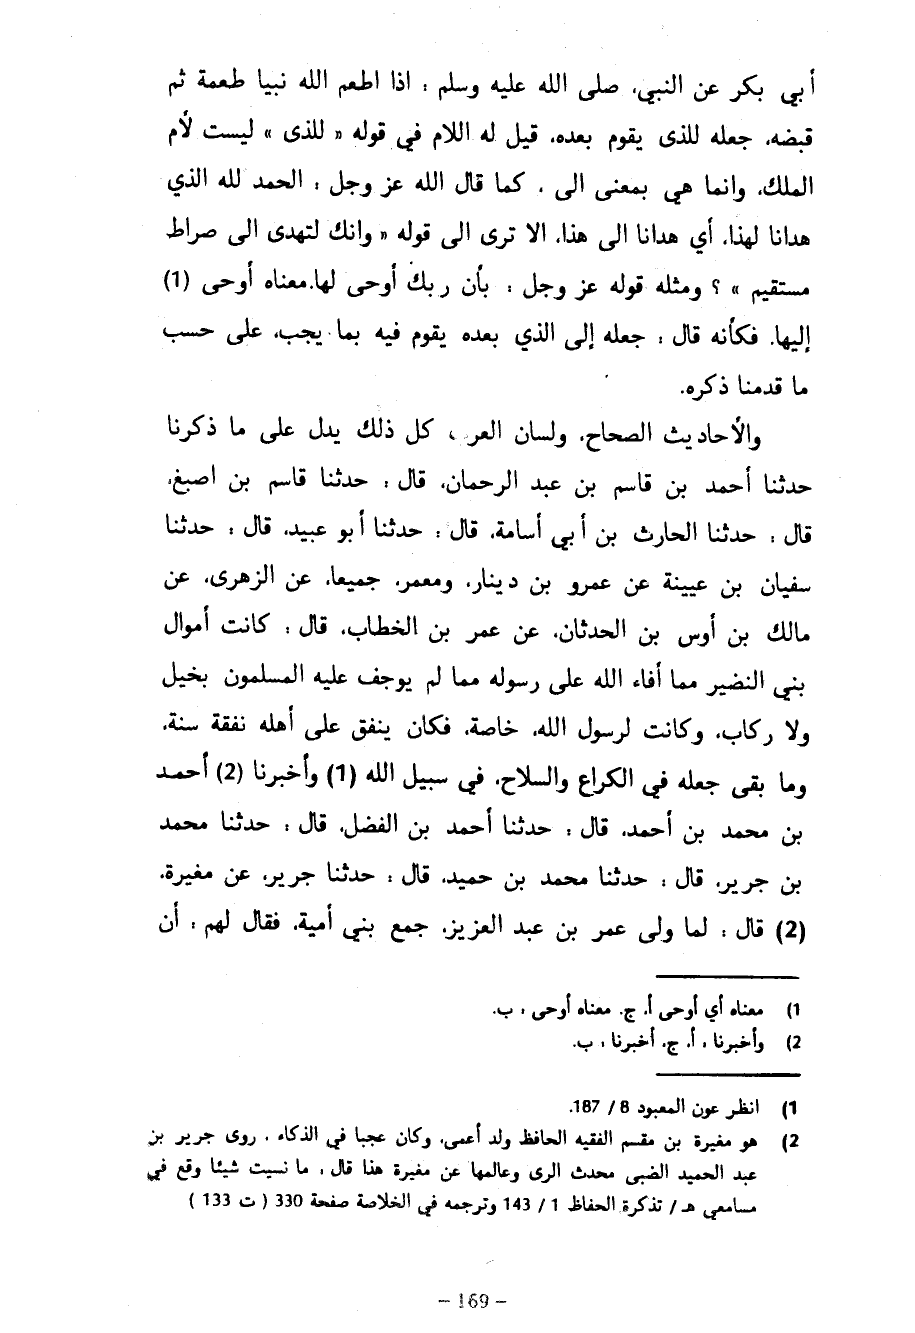 أبي بكر عن النبي، صلى الله عليه وسلم : اذا اطعم الله نبيا طعمة ثم
قبضه، جعله للذى يقوم بعده، قيل له اللام في قوله « للذى » ليست لأم
الملك، وانما هي بمعنى الى ، كما قال الله عز وجل : الحمد لله الذي
هدانا لهذا، أي هدانا الى هذا، الا ترى الى قوله « وانك لتهدى الى صراط
مستقيم » ؟ ومثله قوله عز وجل : بأن ربك أوحى لها.معناه أوحى (1)
إليها، فكأنه قال : جعله إلى الذي بعده يقوم فيه بما يجب، على حسب
ما قدمنا ذكره.
والأحاديث الصحاح، ولسان العر كل ذلك يدل على ما ذكرنا
حدثنا أحمد بن قاسم بن عبد الرحمان، قال : حدثنا قاسم بن اصبغ،
قال : حدثنا الحارث بن أبي أسامة، قال : حدثنا أبو عبيد، قال : حدثنا
سفيان بن عيينة عن عمرو بن دينار، ومعمر، جميعا، عن الزهرى، عن
مالك بن أوس بن الحدثان، عن عمر بن الخطاب، قال : كانت أموال
بني النضير مما أفاء الله على رسوله مما لم يوجف عليه المسلمون بخيل
ولا ركاب، وكانت لرسول الله، خاصة، فكان ينفق على أهله نفقة سنة،
وما بقى جعله في الكراع والسلاح، في سبيل الله (1) وأخبرنا (2) أحمد
بن محمد بن أحمد، قال : حدثنا أحمد بن الفضل، قال : حدثنا محمد
بن جرير، قال : حدثنا محمد بن حميد، قال : حدثنا جرير، عن مغيرة،
(2) قال : لما ولى عمر بن عبد العزيز، جمع بني أمية، فقال لهم : أن
1) معناه أي أوحى أ، ج. معناه أوحى : ب.
2) وأخبرنا : أ، ج، أخبرنا : ب.
1) انظر عون المعبود 8 / 187.
2) هو مغيرة بن مقسم الفقيه الحافظ ولد أعمى، وكان عجبا في الذكاء ، روى جرير بن
عبد الحميد الضبى محدث الرى وعالمها عن مغيرة هذا قال : ما نسيت شيئا وقع في
مسامعي هـ / تذكرة الحفاظ 1 / 143 وترجمه في الخلاصة صفحة 330 ( ت 133 )
- 169 -